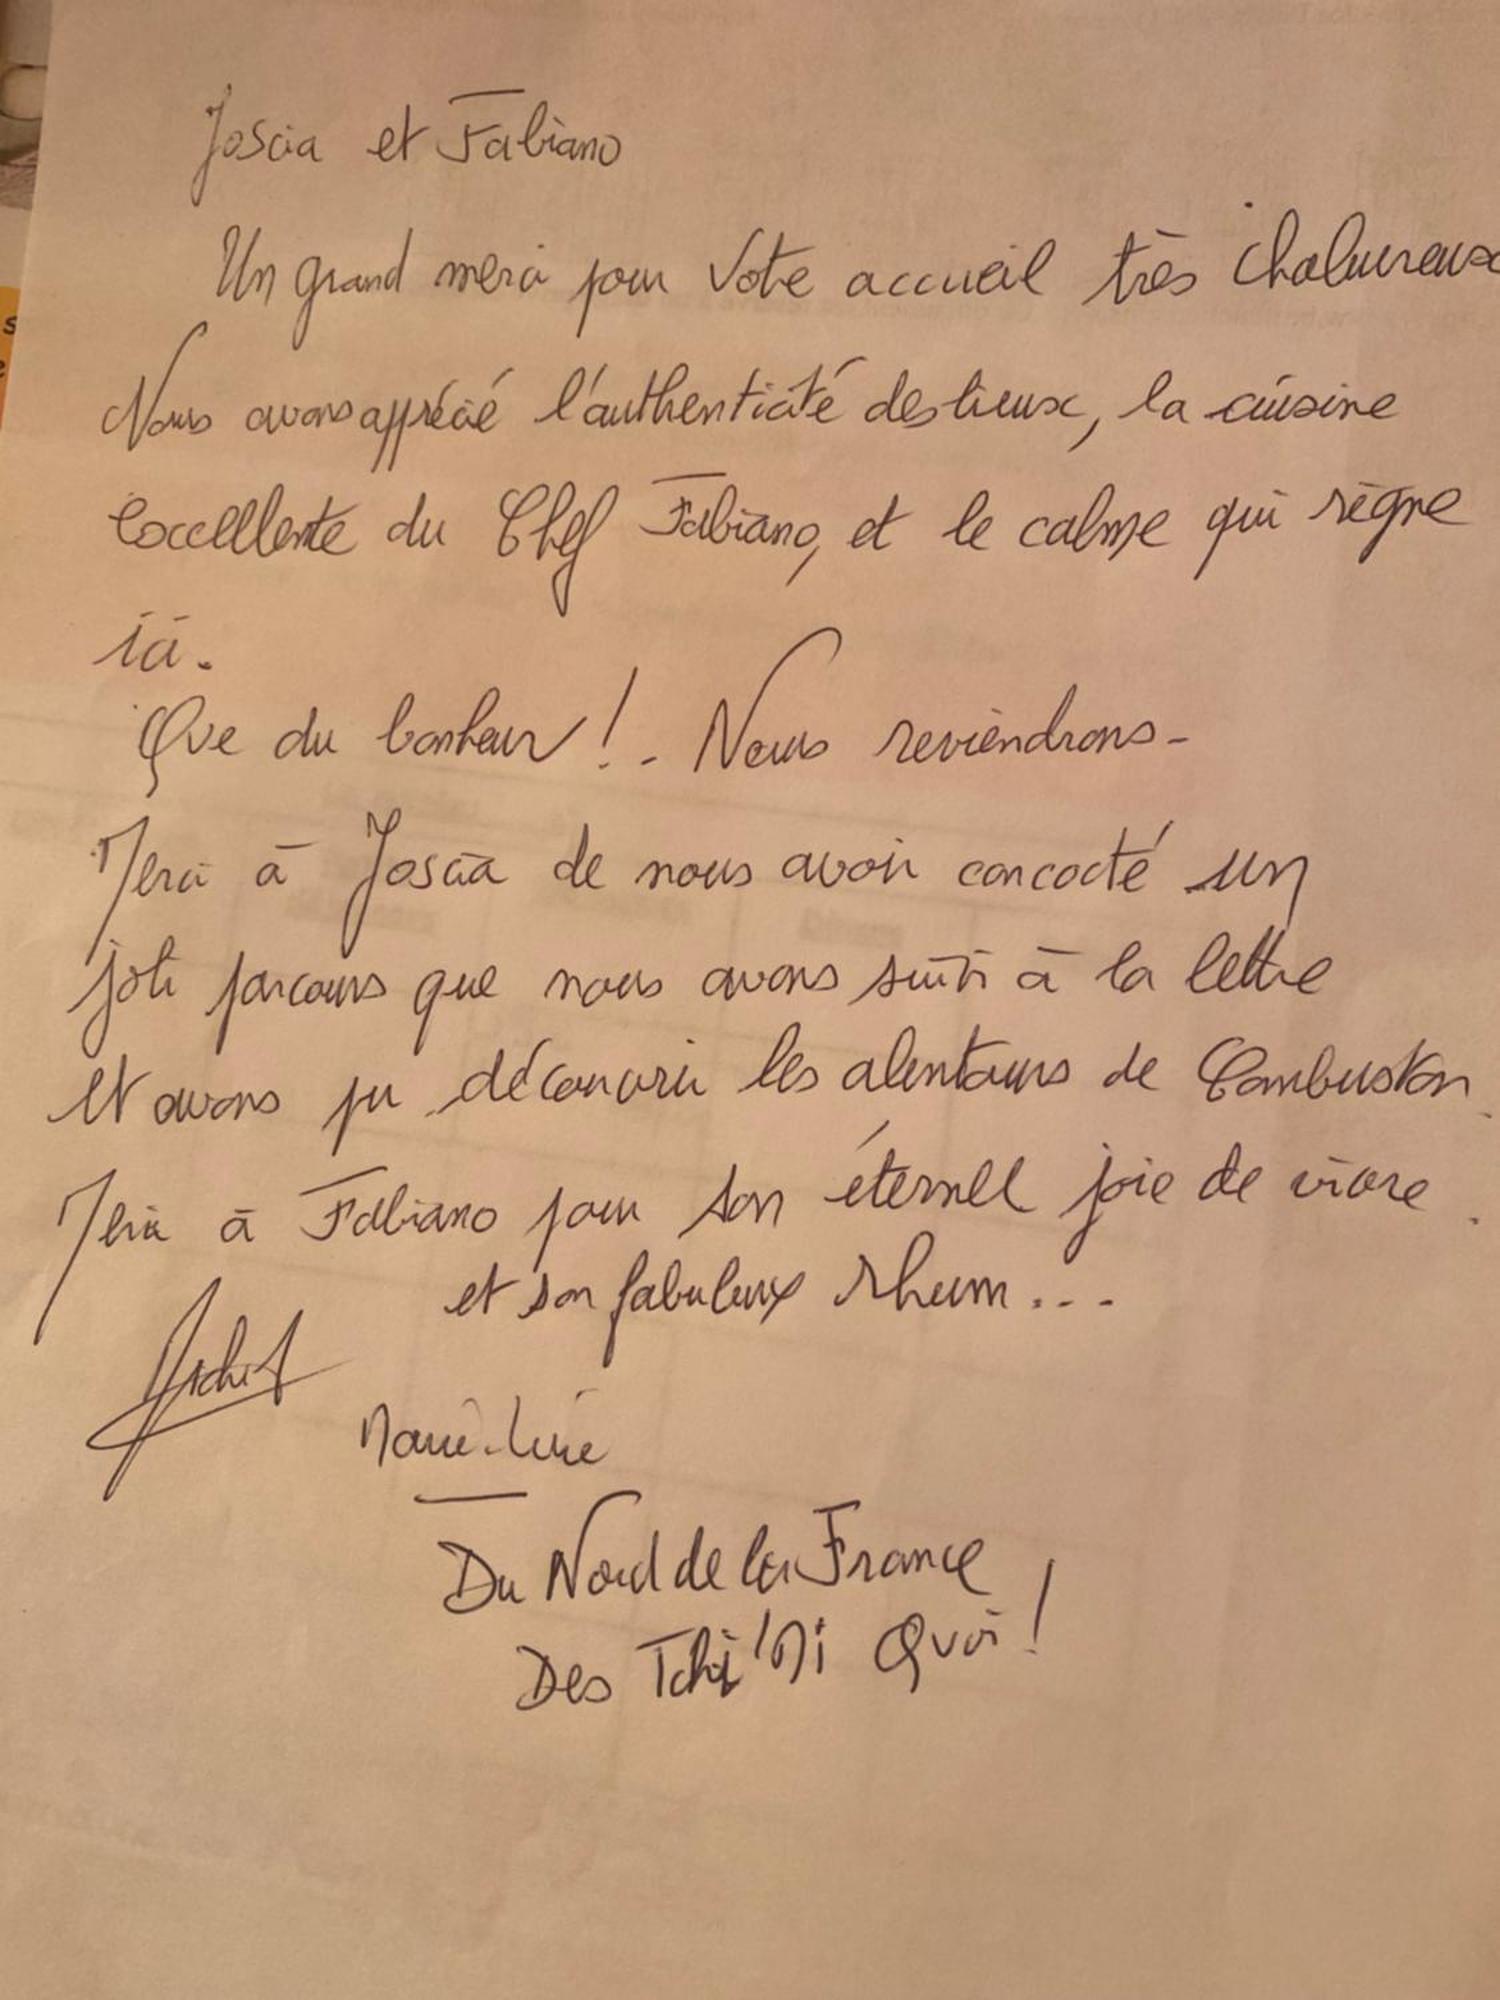 Joscia et Fabiano
Un grand merci pour Votre accueil très chaleureux
Nous avons apprécié l'authenticité des lieux, la cuisine
excelllente du Chef Fabiano, et le calme qui règne
ici.
Que du bonheur ! - Nous reviendrons -
Merci à Joscia de nous avoir concocté un
joli parcours que nous avons suivi à la lettre
et avons pu découvrir les alentours de Combuston.
Merci à Fabiano pour son éternell joie de vivre.
et son fabuleux rhum ...
Marie-Line
Du Nord de la France
Des Tchi'Mi Quoi !